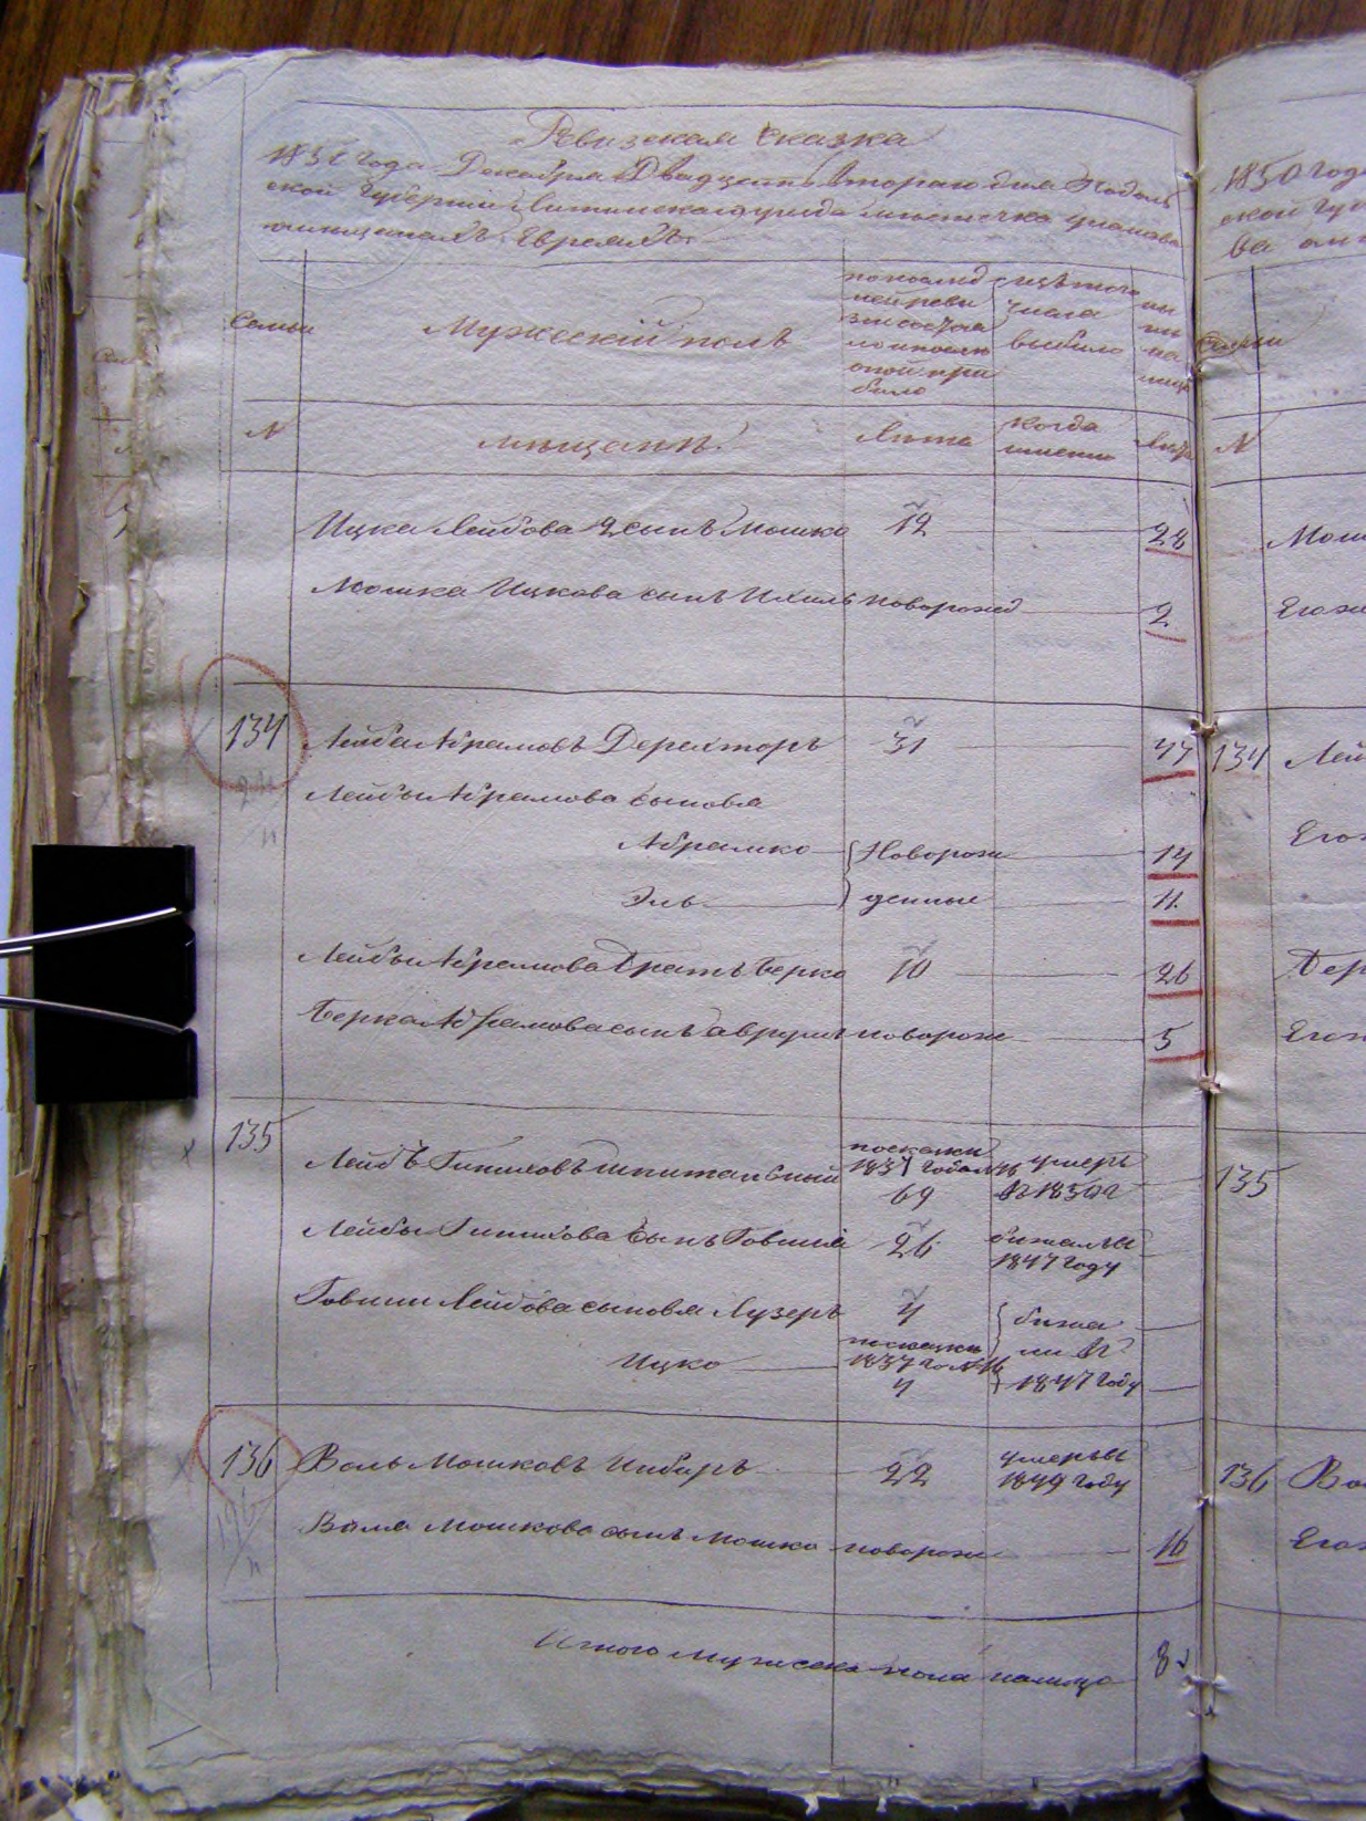 Ревизская сказка
1850 года Декабря Двадцать Втораго дня Подоль
ской Губернии Литинскаго уезда местечка Уланова
о мещанахъ Евреяхъ
Семьи
Мужеский полъ
по послед
ней реви
зии состоя
ло и после
оной при
было
изъ того
числа
выбыло
ны
не
на
лице
N
мещане
Лета
когда
именно
Лета
Ицка Лейбова 2 сынъ Мошко 12 28
Мошка Ицкова сынъ Ихиль новорожд 2
134 Лейба Абрамовъ Деректоръ 31 47
Лейбы Абрамова сыновья
Абрамко Новорож 14
Эль денные 11
Лейбы Абрамова братъ Берко 10 26
Берка Абрамова сынъ Аврумъ новорож 5
135
Лейбъ Гиншовъ шпитальный
по сказки
1837 года N 16
69
умеръ
въ 1850 г
Лейбы Гиншова сынъ Говшия 26
бежалъ въ
1847 году
Говшии Лейбова сыновья Лузеръ 4
бежа
ли въ
1847 году
Ицко
по сказки
1837 го N 16
4
136 Воль Мошковъ 22
умеръ въ
1849 году
Воля Мошкова сынъ Мошко новорож 16
Итого мужеска пола налицо 8
1850 год
ской Гу
N
Мош
Егоже
134 Лей
Егож
Бер
Егож
135
136 Во
Егож